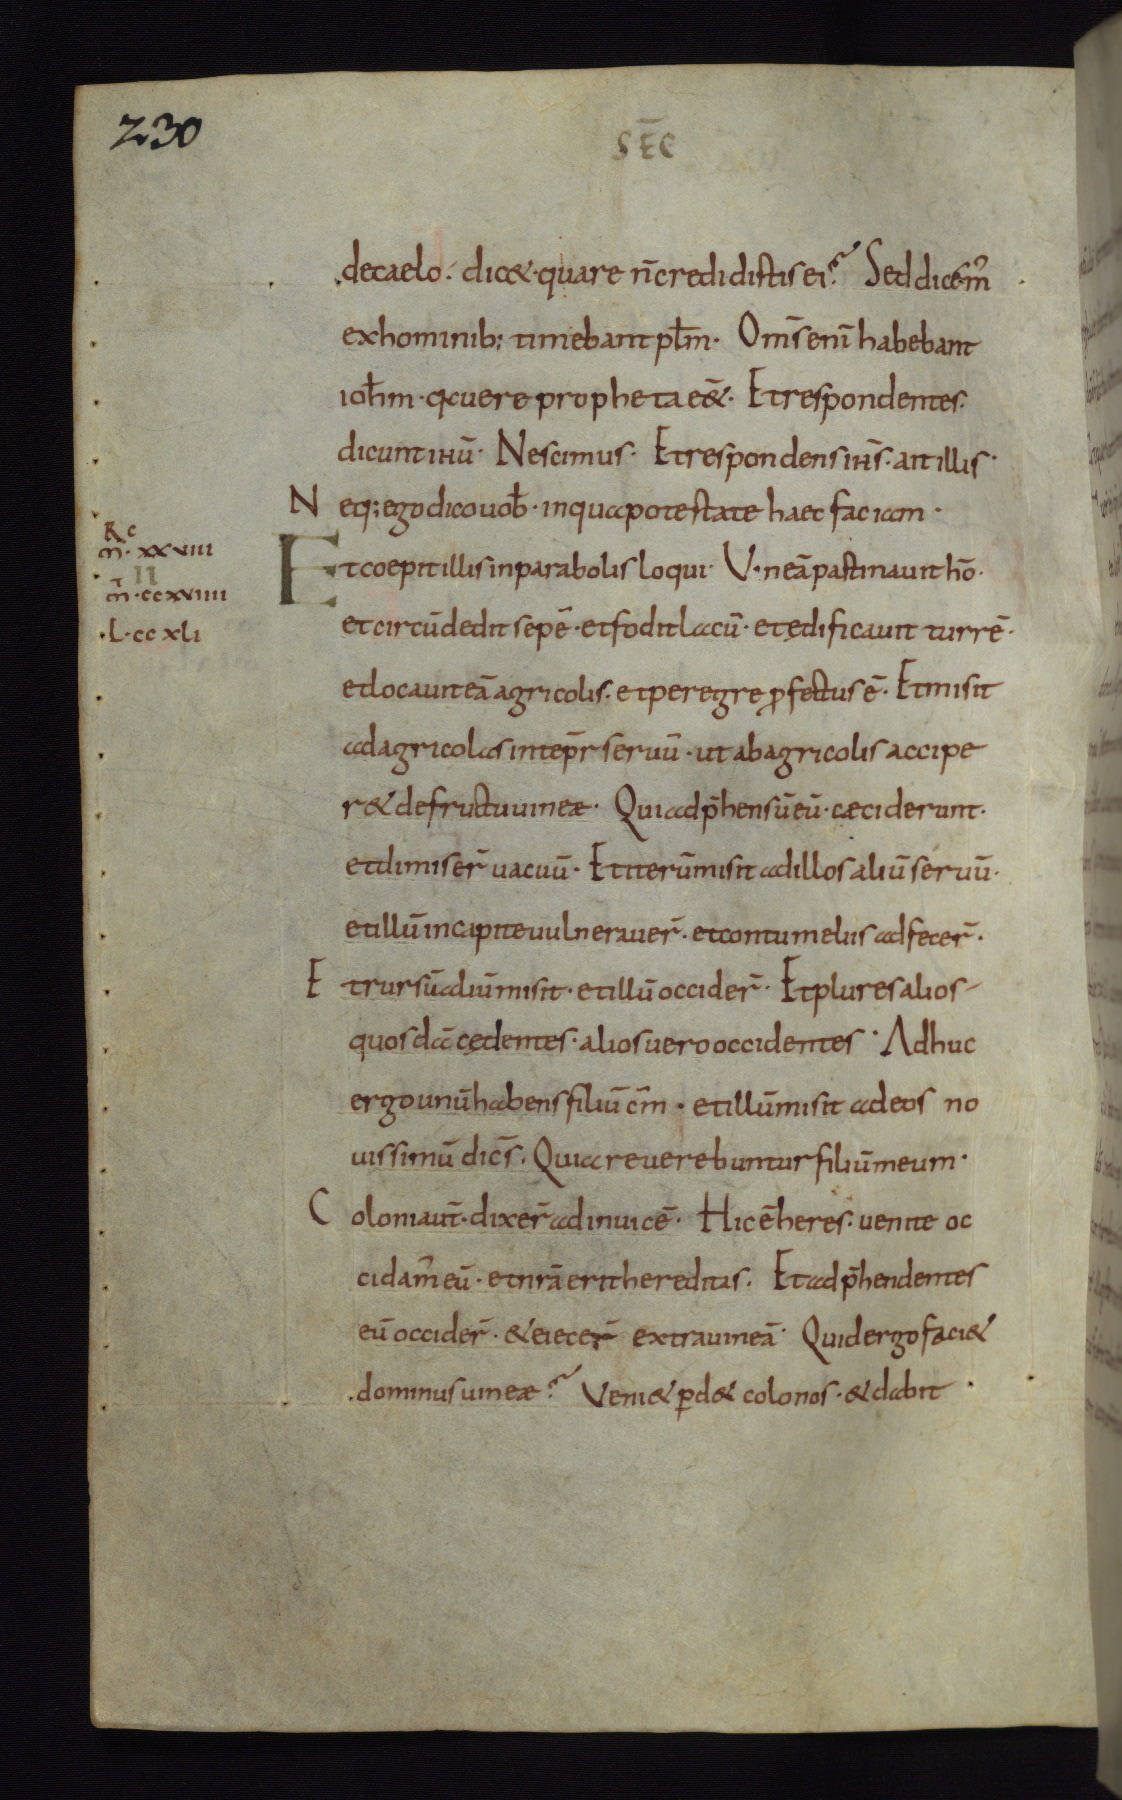 230
SĒC
decaelo. dic&·quare n̄credidistisei? Sed dicem̄
exhominib; timebant pƚm· Om̄s enī habebant
ioħm·q̄a vere propheta e&̄· Et respondentes·
dicunt ihū· Nescimus· Et respondens ih̄s· ait illis·
Neq; ego dico vob̄·in qua potestate haec faciam·
Kc
m̄·xxviii
Et coepit illis in parabolis loqui· Vineā pastinavit hō·
ii
m̄·ccxviiii
et circūdedit sepē·et fodit lacū·et ędificavit turrē·
L·ccxli
et locavit eā agricolis·et peregre ꝓfectus ē· Et misit
ad agricolas in tep̄r servū·ut ab agricolis accipe
r& de fructu vineæ· Qui adp̄hensū eū·cæciderunt·
et dimiser̄ vacuū· Et iterū misit ad illos aliū servū·
et illū in capite vulneraver̄·et contumeliis adfecer̄·
Et rursū aliū misit·et illū occider̄· Et plures alios
quosdā cędentes·alios vero occidentes· Adhuc
ergo unū habens filiū cm̄·et illū misit ad eos no
vissimū dic̄s· Quia reverebuntur filiū meum·
Coloni aut̄·dixer̄ ad invicē· Hic ē heres·venite oc
cidam̄ eū·et nr̄a erit hereditas· Et adp̄hendentes
eū occider̄·& eiecer̄ extra vineā· Quid ergo faci&
dominus vineæ? Veni& ꝑd& colonos·& dabit